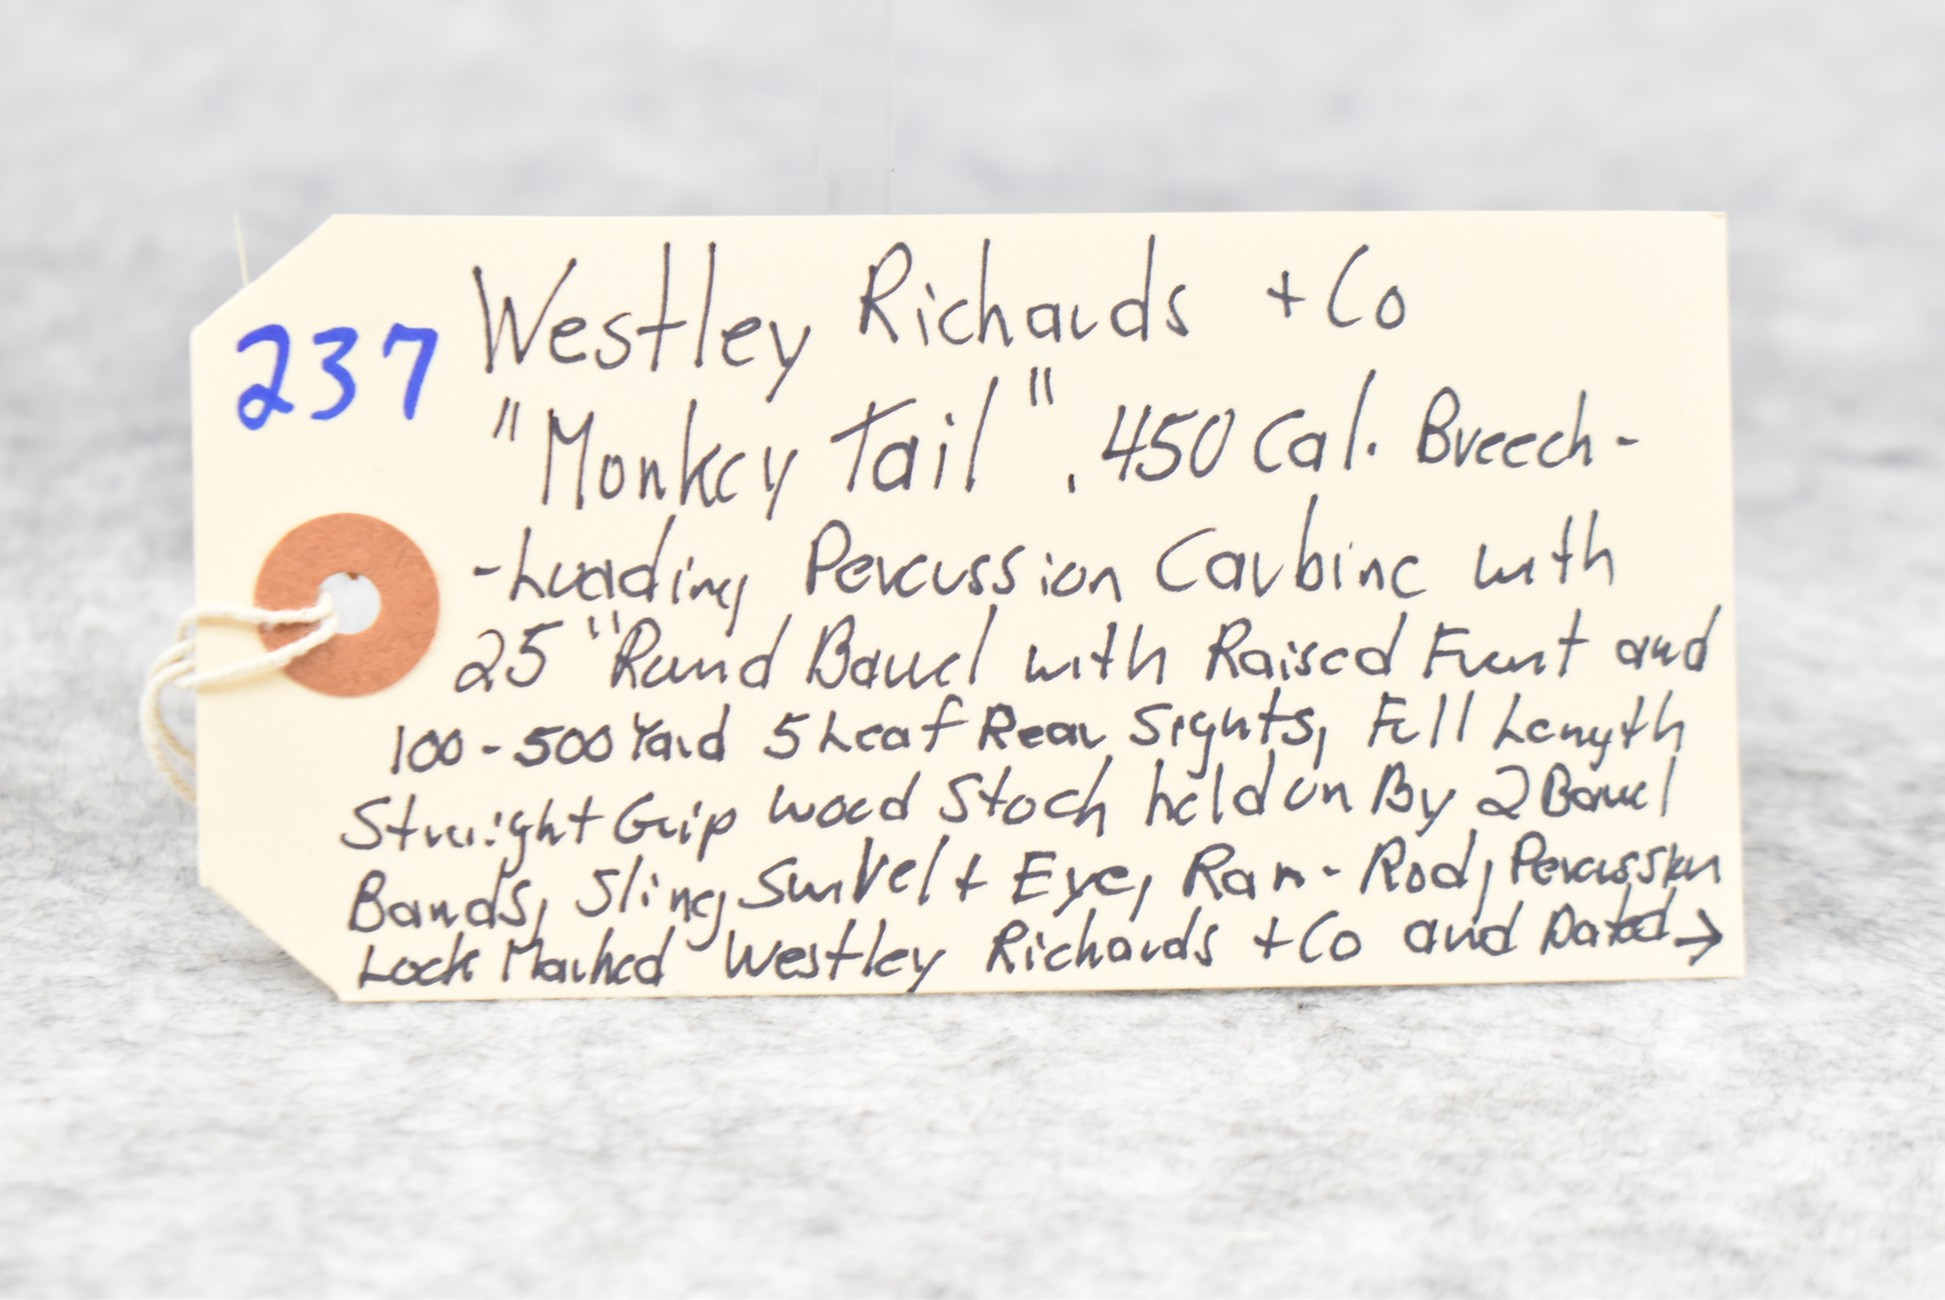 237
Westley Richards + Co
"Monkey Tail" .450 Cal. Breech-
-Loading Percussion Carbine with
25" Round Barrel with Raised Front and
100-500 Yard 5 Leaf Rear Sights, Full Length
Straight Grip Wood Stock held on By 2 Barrel
Bands, Sling Swivel + Eye, Ram-Rod, Percussion
Lock Marked Westley Richards + Co and Dated →